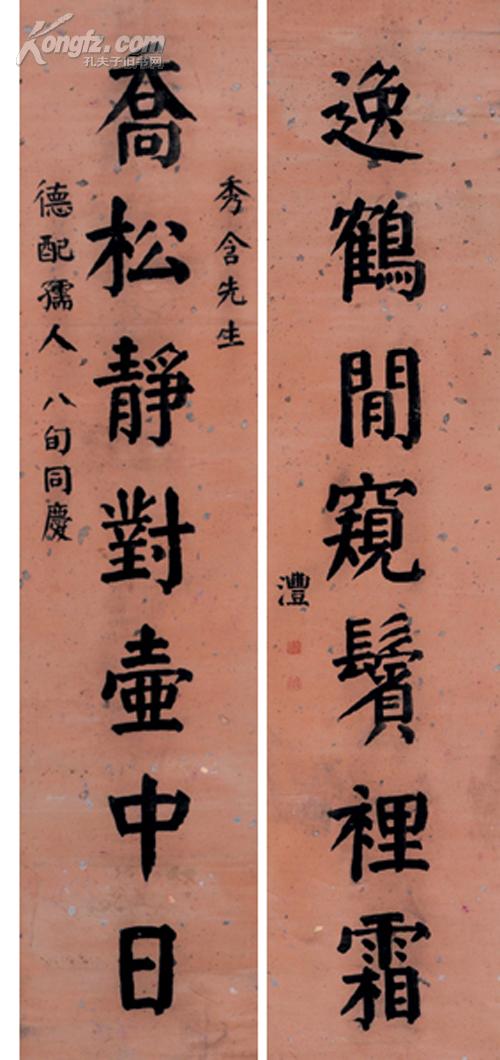 Kongfz.com
孔夫子旧书网
逸鶴閒窺鬢裡霜
灃
秀含先生
喬松靜對壷中日
德配孺人 八旬同慶